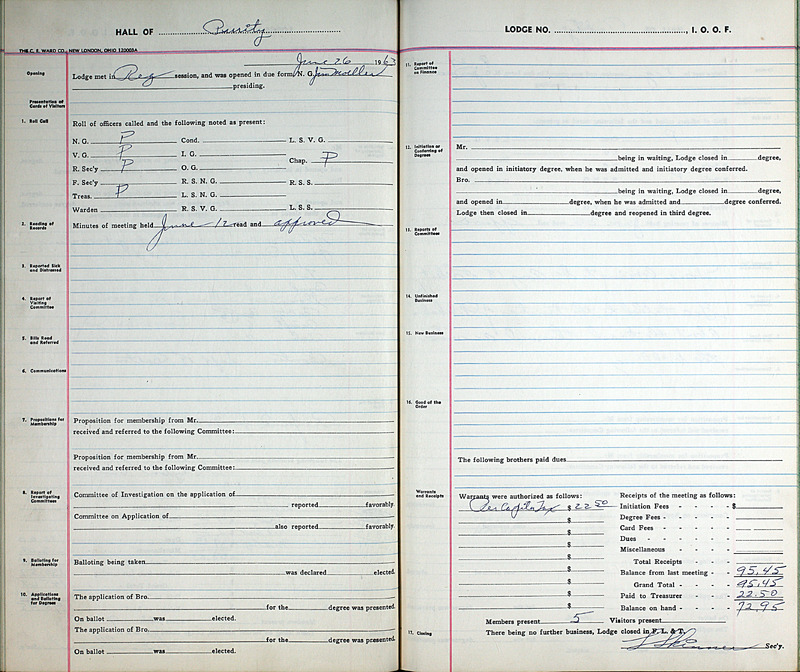 HALL OF Purity
THE C. E. WARD CO., NEW LONDON, OHIO 120005A
June 26 1963
Opening
Lodge met in Reg session, and was opened in due form, N. G. Jim Moeller
presiding.
Presentation of Cards of Visitors
1. Roll Call
Roll of officers called and the following noted as present:
N. G. P Cond. L. S. V. G.
V. G. P I. G.
R. Sec'y P O. G. Chap. P
F. Sec'y R. S. N. G. R. S. S.
Treas. P L. S. N. G.
Warden R. S. V. G. L. S. S.
2. Reading of Records
Minutes of meeting held June 12 read and approved
3. Reported Sick and Distressed
4. Report of Visiting Committee
5. Bills Read and Referred
6. Communications
7. Propositions for Membership
Proposition for membership from Mr.
received and referred to the following Committee:
Proposition for membership from Mr.
received and referred to the following Committee:
8. Report of Investigating Committees
Committee of Investigation on the application of
reported favorably.
Committee on Application of
also reported favorably.
9. Balloting for Membership
Balloting being taken
was declared elected.
10. Applications and Balloting for Degrees
The application of Bro.
for the degree was presented.
On ballot was elected.
The application of Bro.
for the degree was presented.
On ballot was elected.
LODGE NO. , I. O. O. F.
11. Report of Committee on Finance
12. Initiation or Conferring of Degrees
Mr.
being in waiting, Lodge closed in degree,
and opened in initiatory degree, when he was admitted and initiatory degree conferred.
Bro.
being in waiting, Lodge closed in degree,
and opened in degree, when he was admitted and degree conferred.
Lodge then closed in degree and reopened in third degree.
13. Reports of Committees
14. Unfinished Business
15. New Business
16. Good of the Order
The following brothers paid dues
Warrants and Receipts
Warrants were authorized as follows: Receipts of the meeting as follows:
Per Capita Tax $ 22 50 Initiation Fees - - - - $
$ Degree Fees - - - - -
$ Card Fees - - - - -
$ Dues - - - - -
$ Miscellaneous - - - -
$ Total Receipts - -
$ Balance from last meeting - - 95.45
$ Grand Total - - - 95.45
$ Paid to Treasurer - - - 22.50
$ Balance on hand - - - 72.95
Members present 5 Visitors present
17. Closing
There being no further business, Lodge closed in F. L. & T.
Sec'y.